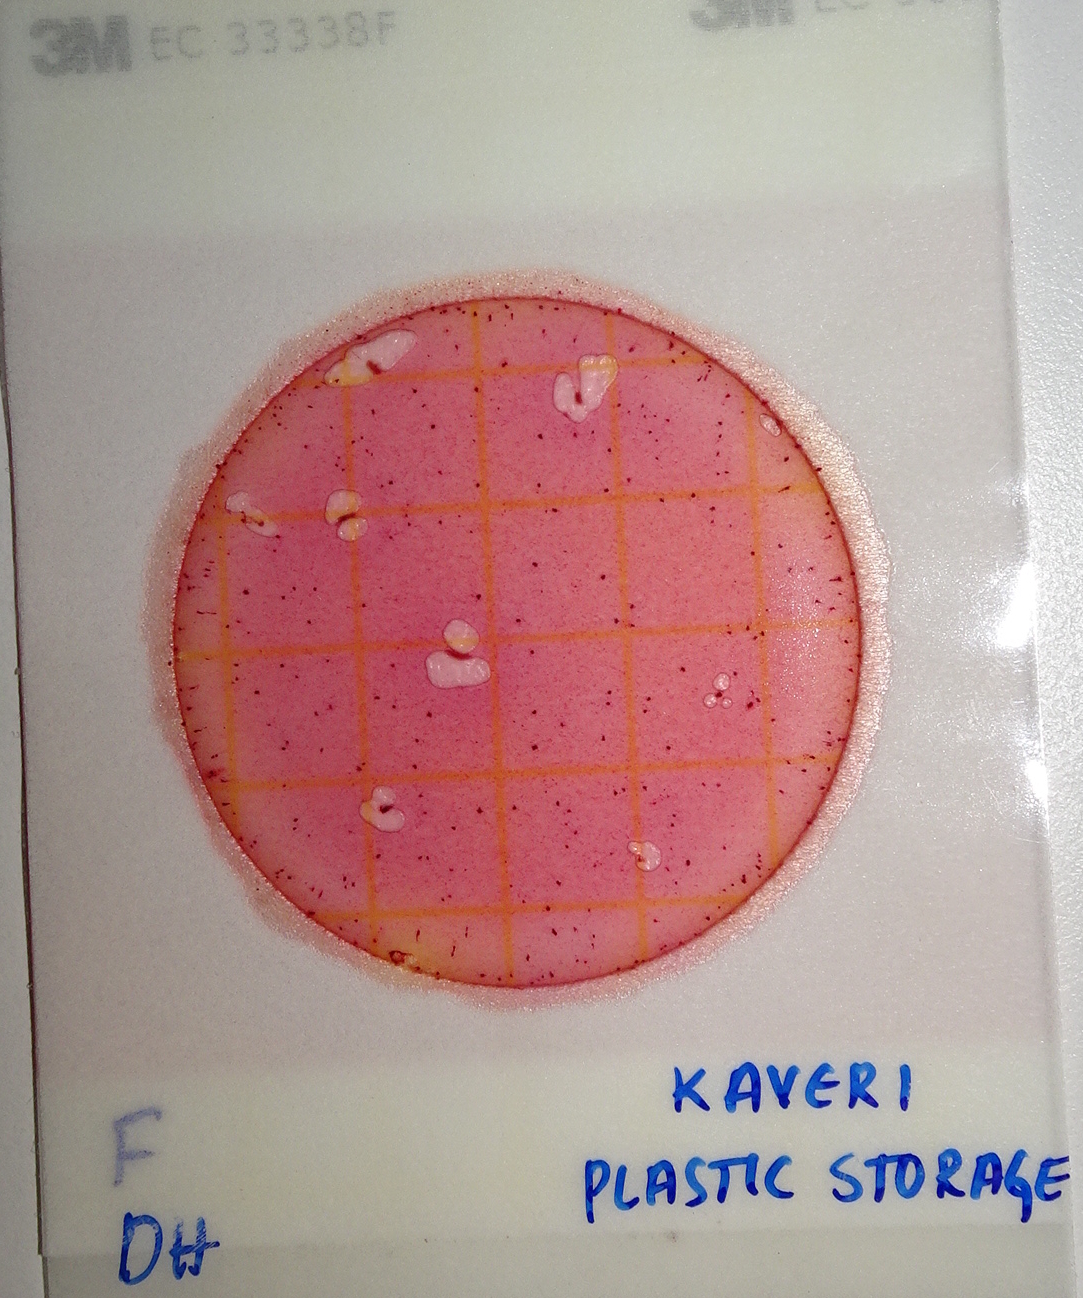 3M EC 33338F
3M EC
KAVERI
PLASTIC STORAGE
F
DH